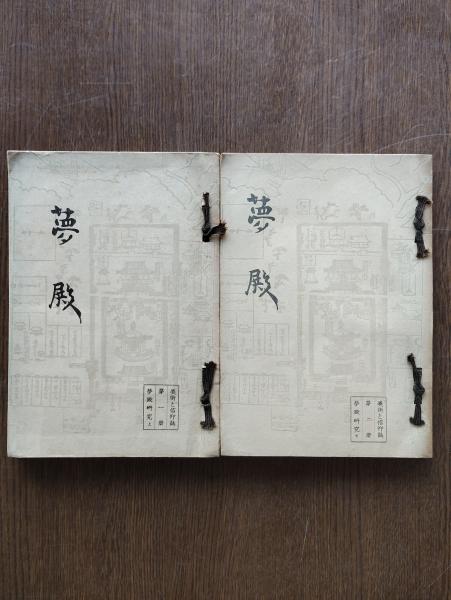 夢殿
美術と信仰誌
第一册
夢殿研究上
夢殿
美術と信仰誌
第二册
夢殿研究下